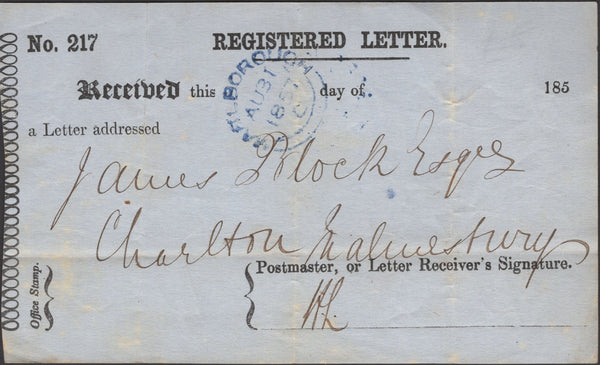 No. 217
REGISTERED LETTER.
Received this day of 185
MARLBOROUGH
AU 31
185
C
a Letter addressed
James Block Esqre
Charlton Malmesbury
Office Stamp.
Postmaster, or Letter Receiver's Signature.